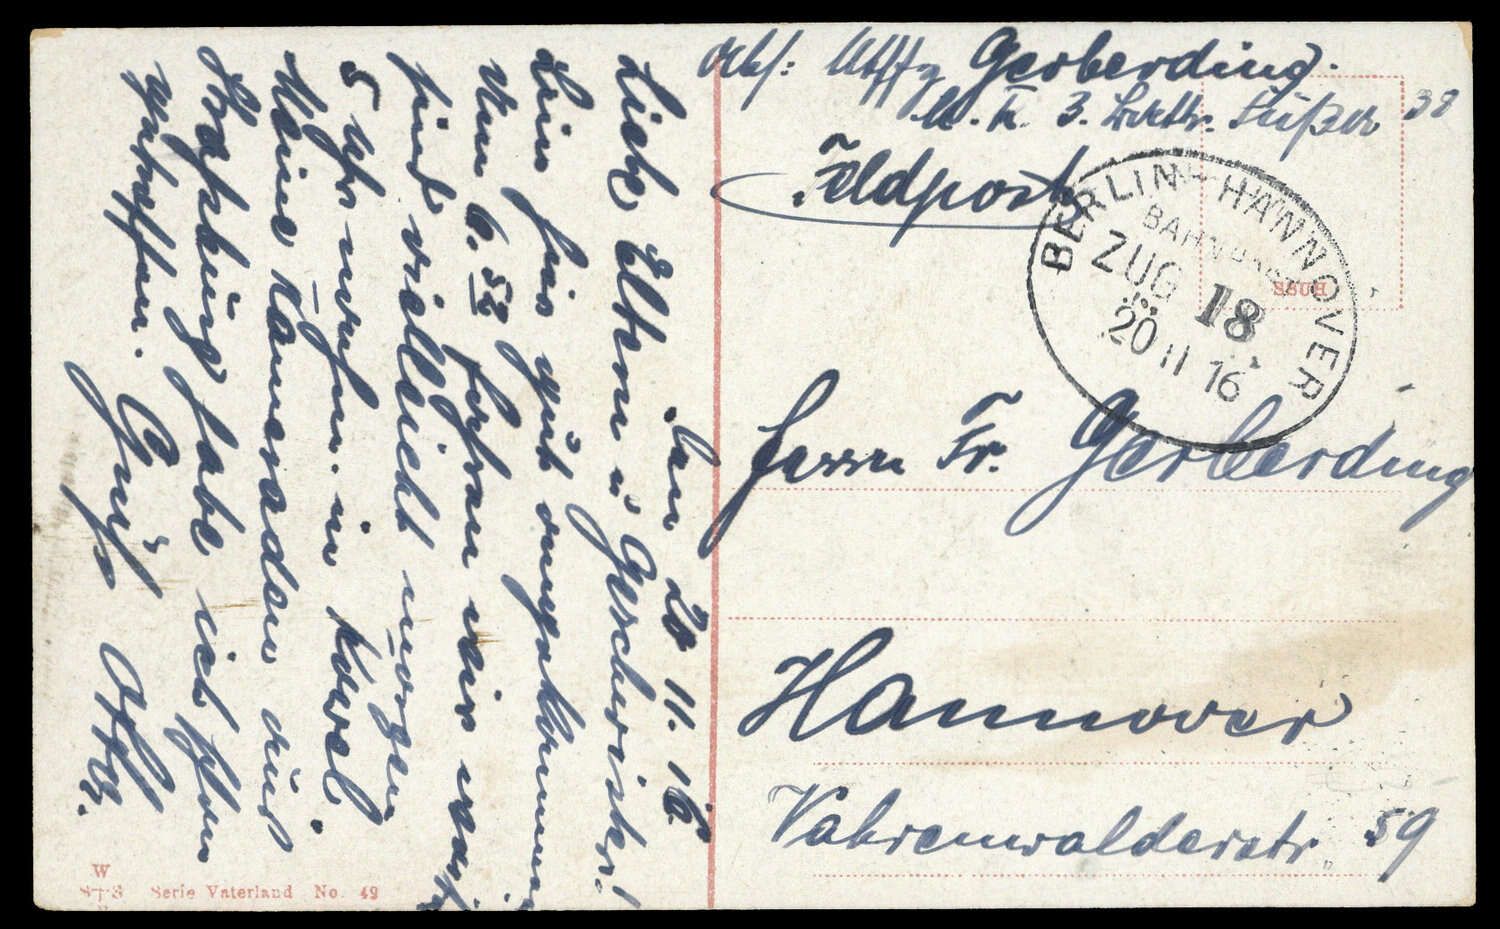 Den 20. 11. 16.
Liebe Eltern u Geschwister!
Bin hier gut angekommen
Um 6.52 fahren wir weiter
sind vielleicht morgen
5 Uhr nachm. in Kowel.
Meine Kameraden und
Begleitung habe ich schon
getroffen. Gruß
Abs: Uffz Gerberding.
M. K. 3. 38
Feldpost
BERLIN - HANNOVER
BAHNPOST
ZUG 18
20 11 16
SSUH
Herrn Fr. Gerberding
Hannover
Vahrenwalderstr. 59
W
S+S
Serie Vaterland No. 49